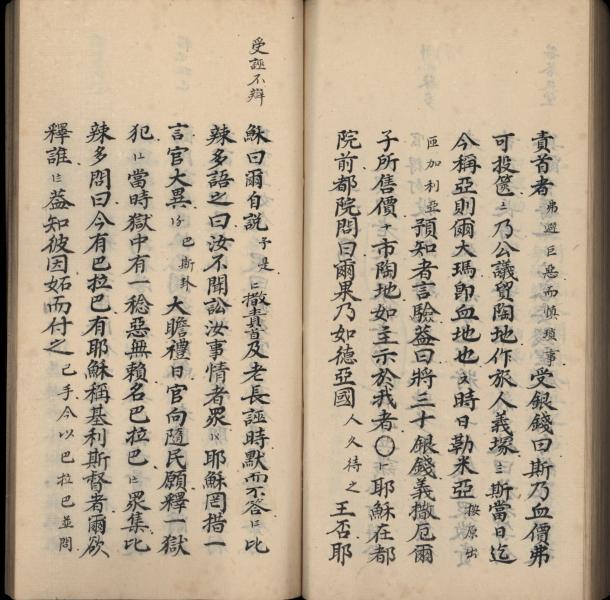 責首者弗避巨惡而慎瑣事受銀錢曰斯乃血價弗
可投篋乃公議貿陶地作旅人義塚斯當日迄
今稱亞則爾大瑪即血地也時日勒米亞按原出
匝加利亞預知者言驗葢曰將三十銀錢義撒厄爾
子所售價市陶地如主示於我者〇耶穌在都
院前都院問曰爾果乃如德亞國人久待之王否耶
受誣不辯
穌曰爾自說于是撒責首及老長誣時默而不答比
辣多語之曰汝不聞訟汝事情者眾耶穌罔措一
言官大異巴斯卦大瞻禮日官向隨民願釋一獄
犯當時獄中有一稔惡無賴名巴拉巴眾集比
辣多問曰今有巴拉巴有耶穌稱基利斯督者爾欲
釋誰葢知彼因妬而付之已手今以巴拉巴並問